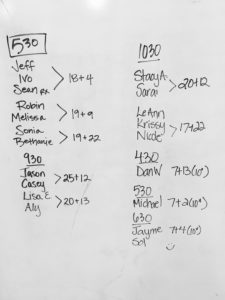 530
Jeff
Ivo
Sean RX
> 18+4
Robin
Melissa
> 19+9
Sonia
Bethanie
> 19+22
930
Jason
Casey
> 25+12
Lisa E
Aly
> 20+13
1030
Stacy A.
Sarai
> 20+12
LeAnn
Krissy
Nicole
> 17+22
430
Dan W 7+13(10")
530
Michael 7+2(10")
630
Jayme 7+4(10")
Sol